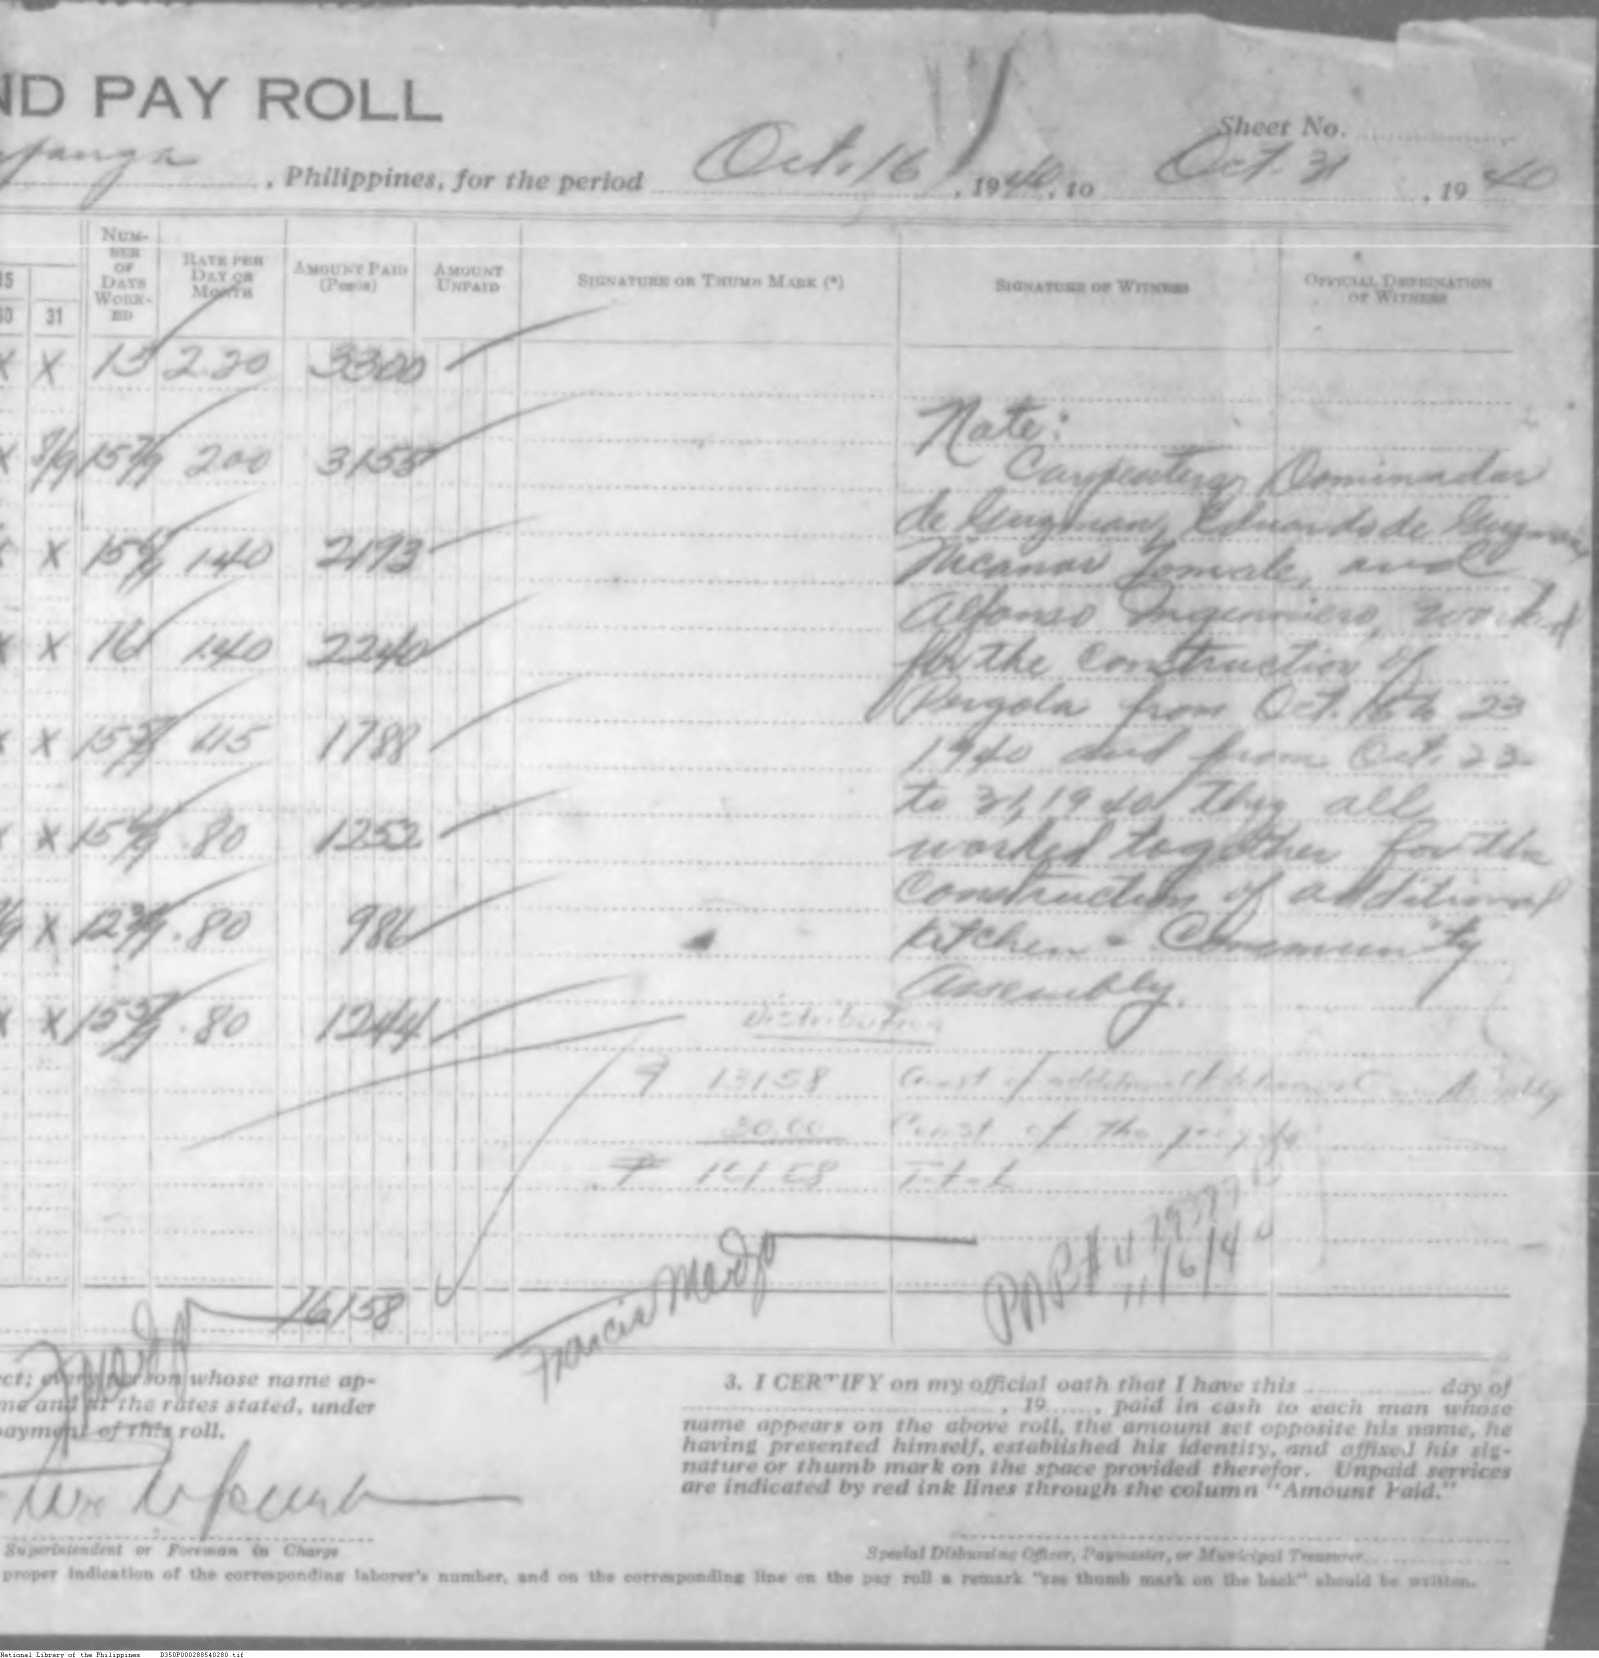 ND PAY ROLL
Sheet No.
, Philippines, for the period Oct. 16, 1940, to Oct. 31, 1940
NUMBER OF DAYS WORKED
RATE PER DAY OR MONTH
AMOUNT PAID (Pesos)
AMOUNT UNPAID
SIGNATURE OR THUMB MARK (*)
SIGNATURE OF WITNESS
OFFICIAL DESIGNATION OF WITNESS
15
30 31
x x 15 2.20 3300
x 7/9 15 7/9 200 3155
x x 15 6/9 140 2193
x x 16 1.40 2240
x x 15 5/9 1.15 1788
x x 15 6/9 .80 1252
x 12 3/9 .80 986
x x 15 5/9 .80 1244
Note:
Carpenters Dominador
de Guzman, Eduardo de Guzman
Nicanor Tomale, and
Alfonso Ingeniero, worked
for the construction of
Pergola from Oct. 16 to 23
1940 and from Oct. 23
to 31, 1940 they all
worked together for the
construction of additional
kitchen & Community
Assembly.
Distribution
₱ 131.58 Const of additional
30.00 Const of the
₱ 161.58 Total
16158
Francis
11/6/4
ect; every person whose name ap-
me and at the rates stated, under
payment of this roll.
Superintendent or Foreman in Charge
3. I CERTIFY on my official oath that I have this ............ day of
............, 19......, paid in cash to each man whose
name appears on the above roll, the amount set opposite his name, he
having presented himself, established his identity, and affixed his sig-
nature or thumb mark on the space provided therefor. Unpaid services
are indicated by red ink lines through the column "Amount Paid."
Special Disbursing Officer, Paymaster, or Municipal Treasurer.
proper indication of the corresponding laborer's number, and on the corresponding line on the pay roll a remark "see thumb mark on the back" should be written.
National Library of the Philippines D350P000288540280.tif